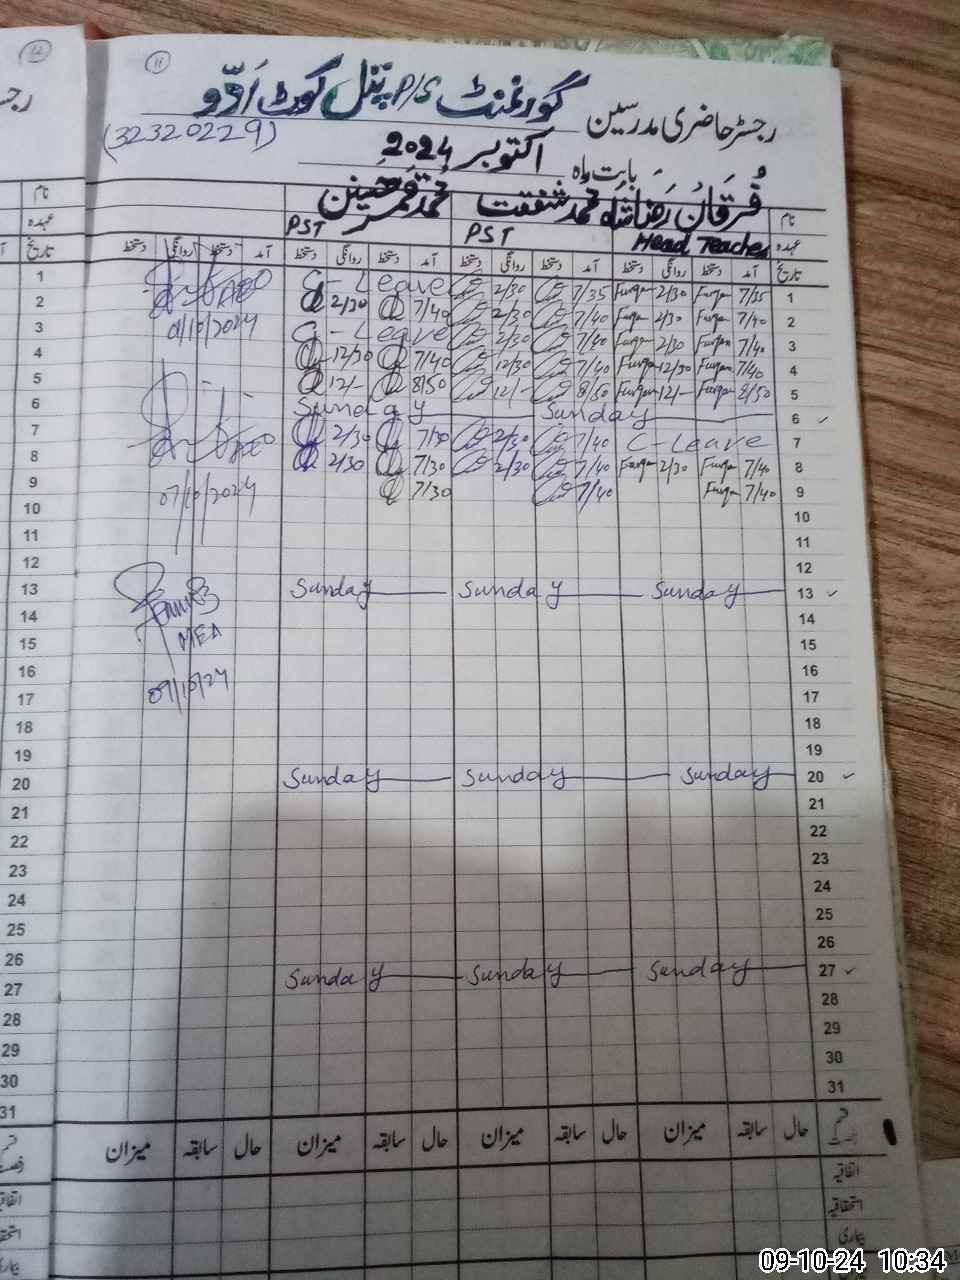 12
11
رجسٹر حاضری مدرسین گورنمنٹ P/S پتل کوٹ ادّو
(32320229)
بابت ماہ اکتوبر 2024
نام فُرقان رَضا شاہ محمد شفقت محمد قمر حسنین نام
عہدہ Head Teacher PST PST عہدہ
تاریخ آمد دستخط روانگی دستخط آمد دستخط روانگی دستخط آمد دستخط روانگی دستخط آمد دستخط روانگی دستخط تاریخ
1 C-Leave 2/30 7/35 Furqan 2/30 Furqan 7/35 1
2 2/30 7/40 2/30 7/40 Furqan 2/30 Furqan 7/40 2
AEO
01/10/2024
3 C-Leave 2/30 7/40 Furqan 2/30 Furqan 7/40 3
4 12/30 7/40 12/30 7/40 Furqan 12/30 Furqan 7/40 4
5 12/- 8/50 12/- 8/50 Furqan 12/- Furqan 8/50 5
6 Sunday Sunday 6
7 2/30 7/30 2/30 7/40 C-Leave 7
AEO
8 2/30 7/30 2/30 7/40 Furqan 2/30 Furqan 7/40 8
9 7/30 7/40 Furqan 7/40 9
07/10/2024
10 10
11 11
12 12
13 Sunday Sunday Sunday 13
14 14
MEA
15 15
16 16
09/10/24
17 17
18 18
19 19
20 Sunday Sunday Sunday 20
21 21
22 22
23 23
24 24
25 25
26 26
27 Sunday Sunday Sunday 27
28 28
29 29
30 30
31 31
قسم رخصت حال سابقہ میزان حال سابقہ میزان حال سابقہ میزان حال سابقہ میزان قسم رخصت
اتفاقیہ
استحقاقیہ
بیماری
09-10-24 10:34